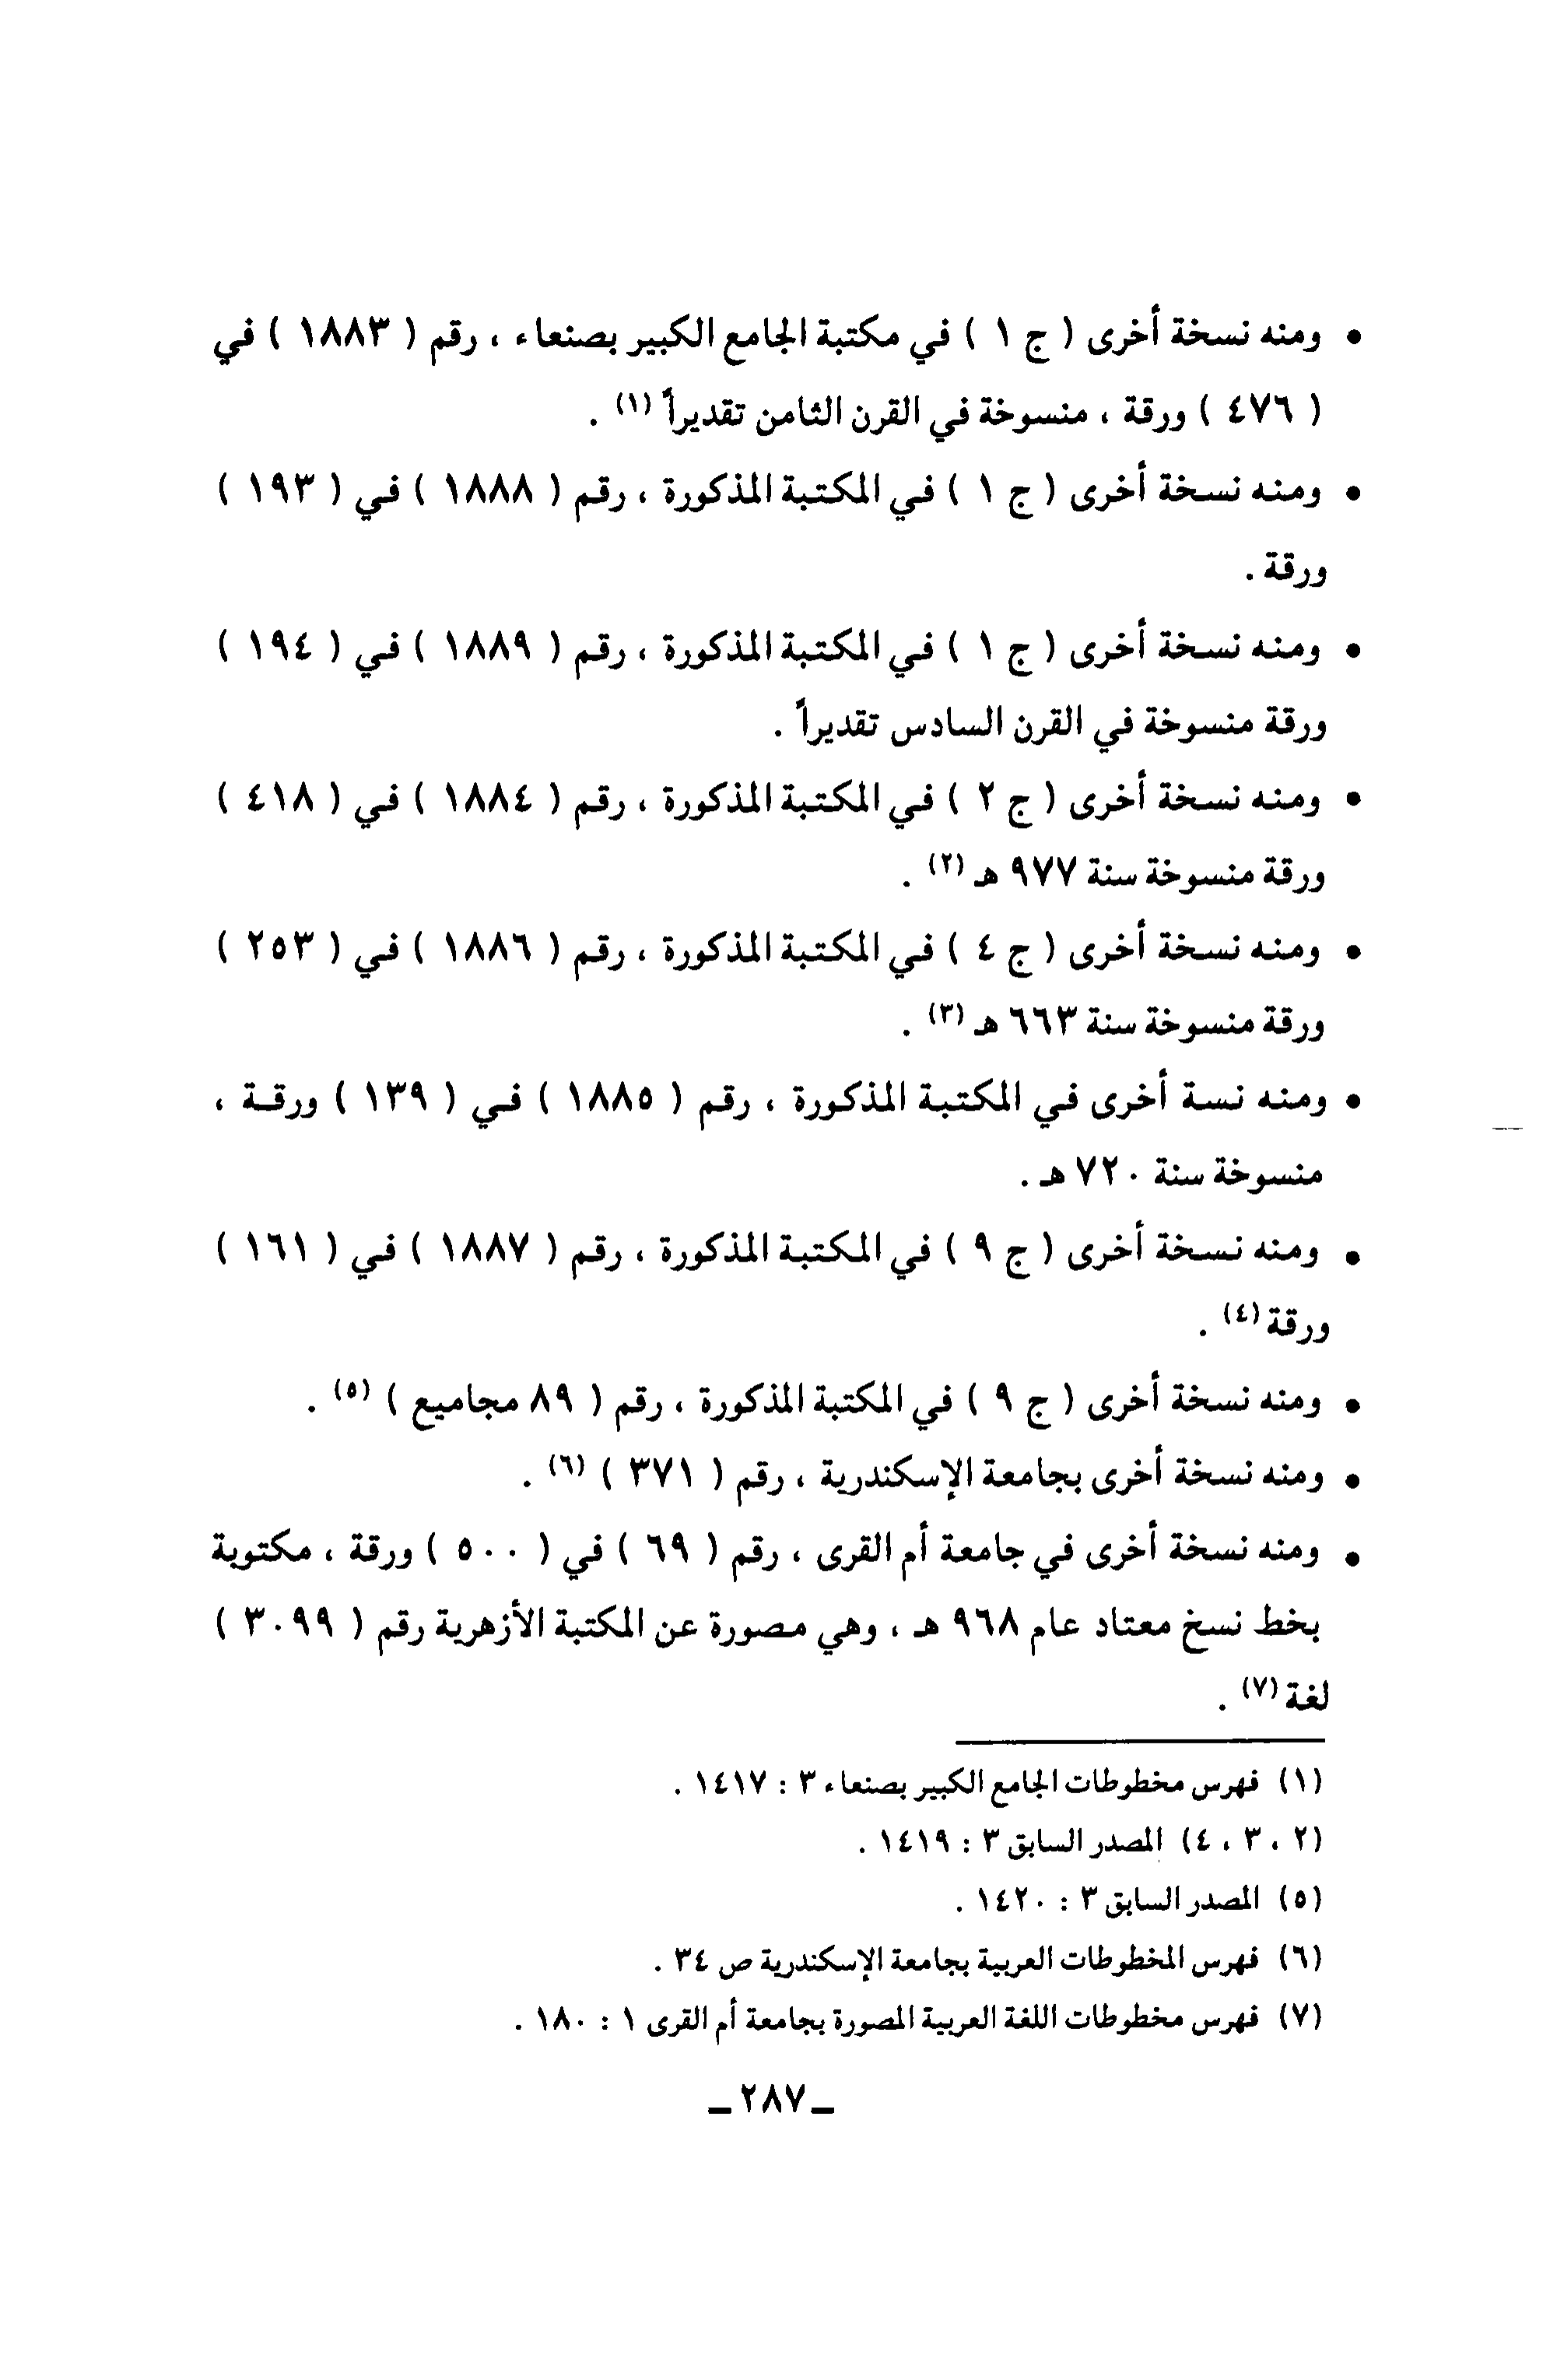 • ومنه نسخة أخرى ( ج ١ ) في مكتبة الجامع الكبير بصنعاء ، رقم ( ١٨٨٣ ) في
( ٤٧٦ ) ورقة ، منسوخة في القرن الثامن تقديراً (١) .
• ومنه نسخة أخرى ( ج ١ ) في المكتبة المذكورة ، رقم ( ١٨٨٨ ) في ( ١٩٣ )
ورقة .
• ومنه نسخة أخرى ( ج ١ ) في المكتبة المذكورة ، رقم ( ١٨٨٩ ) في ( ١٩٤ )
ورقة منسوخة في القرن السادس تقديراً .
• ومنه نسخة أخرى ( ج ٢ ) في المكتبة المذكورة ، رقم ( ١٨٨٤ ) في ( ٤١٨ )
ورقة منسوخة سنة ٩٧٧ هـ (٢) .
• ومنه نسخة أخرى ( ج ٤ ) في المكتبة المذكورة ، رقم ( ١٨٨٦ ) في ( ٢٥٣ )
ورقة منسوخة سنة ٦٦٣ هـ (٣) .
• ومنه نسة أخرى في المكتبة المذكورة ، رقم ( ١٨٨٥ ) في ( ١٣٩ ) ورقة ،
منسوخة سنة ٧٢٠ هـ .
• ومنه نسخة أخرى ( ج ٩ ) في المكتبة المذكورة ، رقم ( ١٨٨٧ ) في ( ١٦١ )
ورقة (٤) .
• ومنه نسخة أخرى ( ج ٩ ) في المكتبة المذكورة ، رقم ( ٨٩ مجاميع ) (٥) .
• ومنه نسخة أخرى بجامعة الإسكندرية ، رقم ( ٣٧١ ) (٦) .
• ومنه نسخة أخرى في جامعة أم القرى ، رقم ( ٦٩ ) في ( ٥٠٠ ) ورقة ، مكتوبة
بخط نسخ معتاد عام ٩٦٨ هـ ، وهي مصورة عن المكتبة الأزهرية رقم ( ٣٠٩٩ )
لغة (٧) .
(١) فهرس مخطوطات الجامع الكبير بصنعاء ٣ : ١٤١٧ .
(٢ ، ٣ ، ٤) المصدر السابق ٣ : ١٤١٩ .
(٥) المصدر السابق ٣ : ١٤٢٠ .
(٦) فهرس المخطوطات العربية بجامعة الإسكندرية ص ٣٤ .
(٧) فهرس مخطوطات اللغة العربية المصورة بجامعة أم القرى ١ : ١٨٠ .
ـ ٢٨٧ ـ